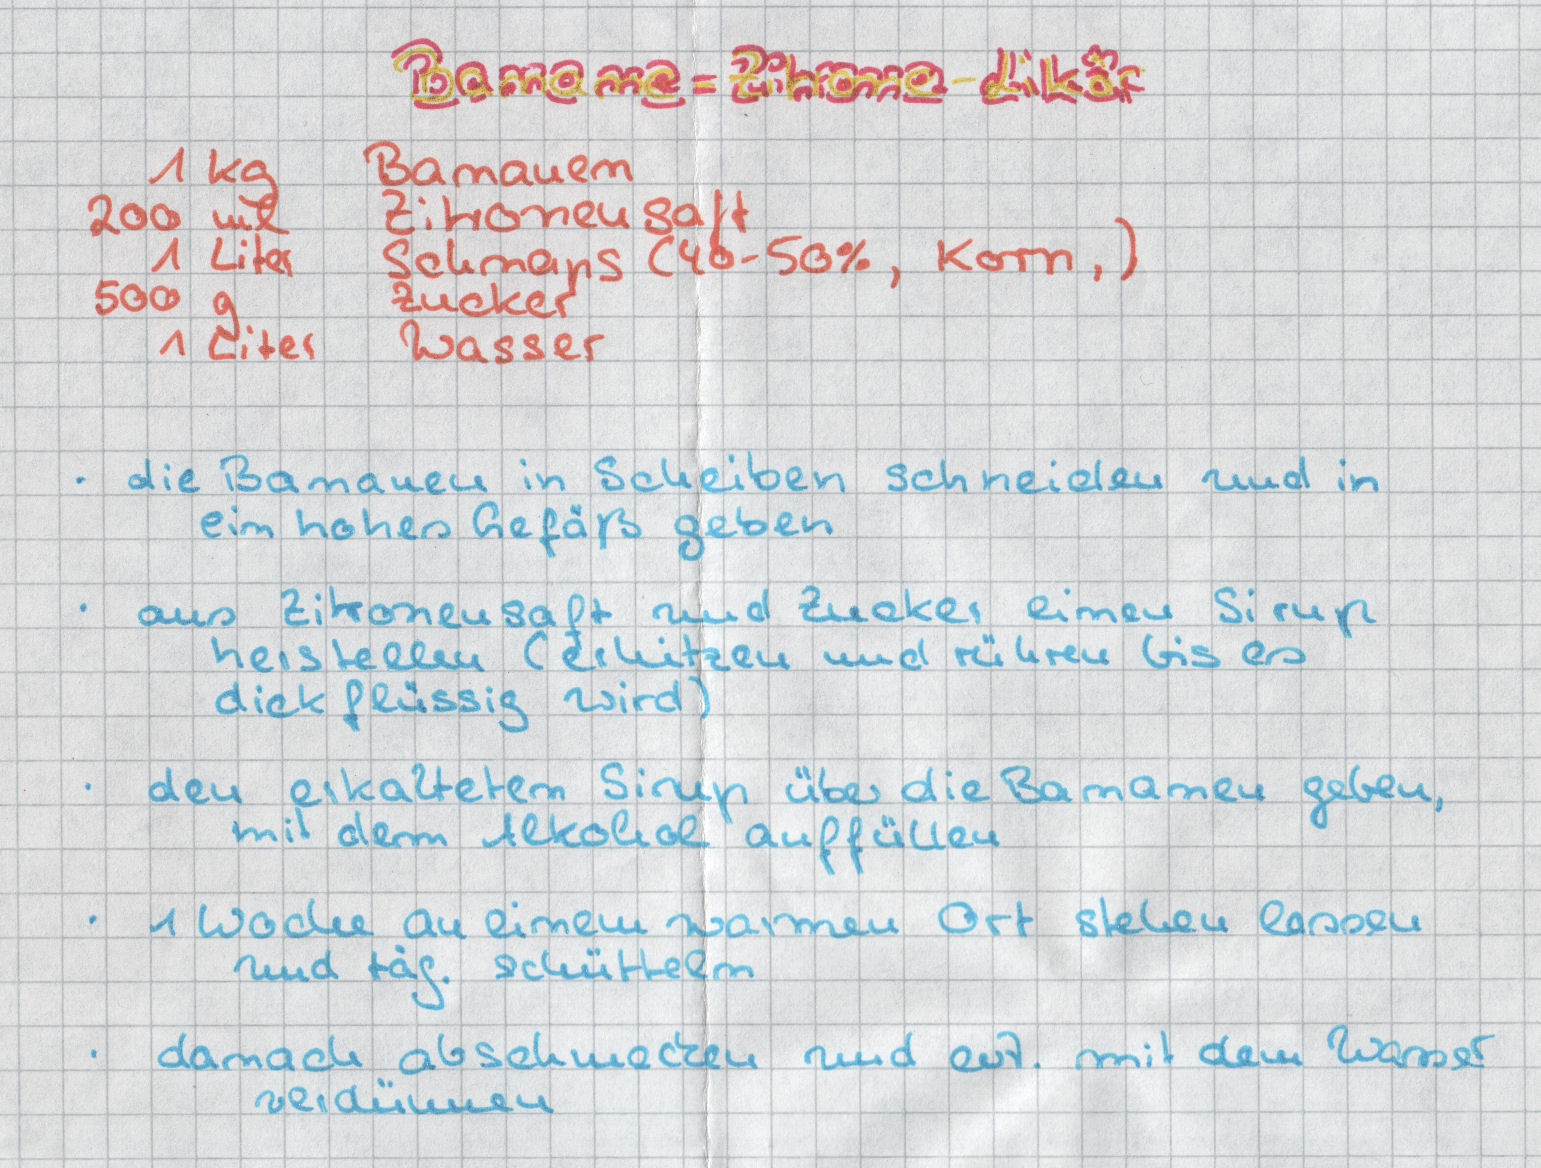 Banane-Zitrone-Likör
1 kg Bananen
200 ml Zitronensaft
1 Liter Schnaps (40-50%, Korn,)
500 g Zucker
1 Liter Wasser
· die Bananen in Scheiben schneiden und in
ein hohes Gefäß geben
· aus Zitronensaft und Zucker einen Sirup
herstellen (erhitzen und rühren bis es
dickflüssig wird)
· den erkalteten Sirup über die Bananen geben,
mit dem Alkohol auffüllen
· 1 Woche an einem warmen Ort stehen lassen
und täg. schütteln
· danach abschmecken und evt. mit dem Wasser
verdünnen